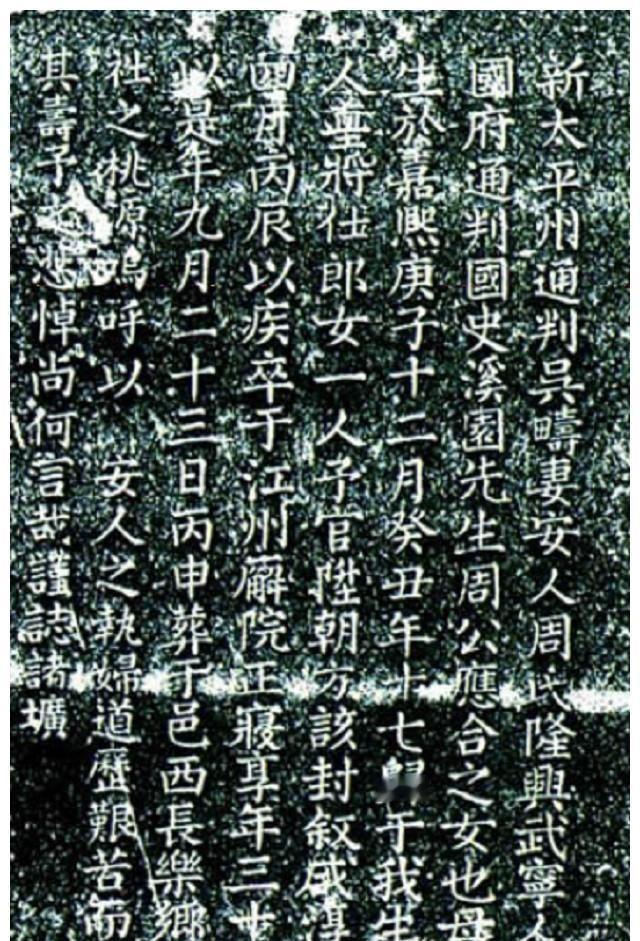 新太平州通判吳疇妻安人周氏隆興武寧人
國府通判國史溪園先生周公應合之女也母
生於嘉熙庚子十二月癸丑年十七歸于我生
人垕將仕郎女一人予官陞朝方該封叙咸淳
四月丙辰以疾卒于江州廨院正寢享年三十
以是年九月二十三日丙申葬于邑西長樂鄉
社之桃源嗚呼以 安人之執婦道歷艱苦而
其壽予之悲悼尚何言哉謹誌諸壙